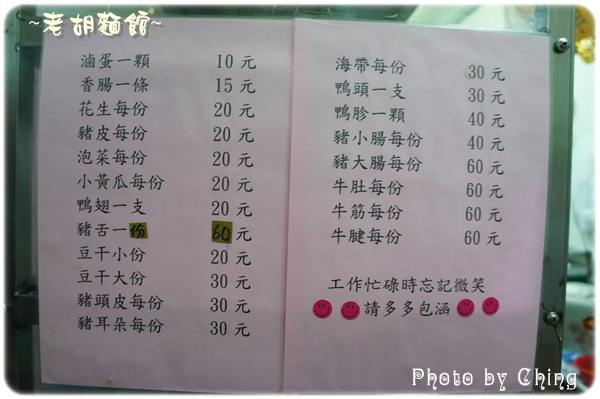 ~老胡麵館~
滷蛋一顆 10 元
香腸一條 15 元
花生每份 20 元
豬皮每份 20 元
泡菜每份 20 元
小黃瓜每份 20 元
鴨翅一支 20 元
豬舌一份 60 元
豆干小份 20 元
豆干大份 30 元
豬頭皮每份 30 元
豬耳朵每份 30 元
海帶每份 30 元
鴨頭一支 30 元
鴨胗一顆 40 元
豬小腸每份 40 元
豬大腸每份 60 元
牛肚每份 60 元
牛筋每份 60 元
牛腱每份 60 元
工作忙碌時忘記微笑
請多多包涵
Photo by Ching